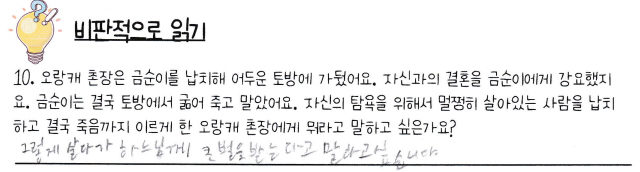 비판적으로 읽기
10. 오랑캐 촌장은 금순이를 납치해 어두운 토방에 가뒀어요. 자신과의 결혼을 금순이에게 강요했지
요. 금순이는 결국 토방에서 굶어 죽고 말았어요. 자신의 탐욕을 위해서 멀쩡히 살아있는 사람을 납치
하고 결국 죽음까지 이르게 한 오랑캐 촌장에게 뭐라고 말하고 싶은가요?
그렇게 살다가 하느님께 큰 벌을 받는다고 말하고 싶습니다